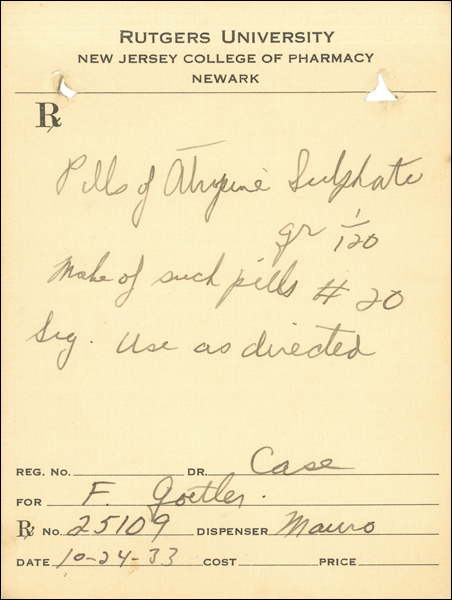 RUTGERS UNIVERSITY
NEW JERSEY COLLEGE OF PHARMACY
NEWARK
℞
Pills of Atropine Sulphate
gr 1/120
Make of such pills # 20
Sig. Use as directed
REG. NO. DR. Case
FOR F. Goetler.
℞ NO. 25109 DISPENSER Mauro
DATE 10-24-33 COST PRICE